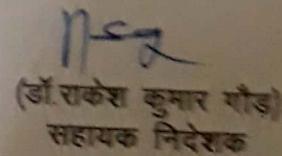 (डॉ. राकेश कुमार गौड़)
सहायक निदेशक